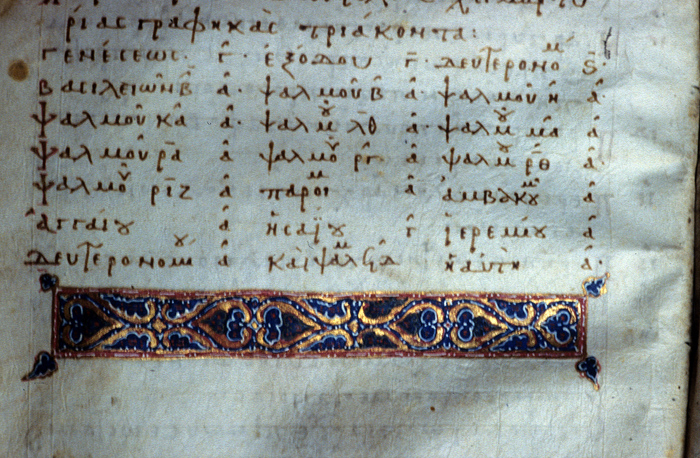 ρίας γραφικὰς τριάκοντα:
γενέσεως. γ̂· ἐξόδου γ̄· δευτερονο^μ ς̄
βασιλειῶν β̂ ᾱ· ψαλμοῦ β ᾱ· ψαλμοῦ η̂ ᾱ·
ψαλμοῦ κ̂α ᾱ· ψαλμ^ου λ̄θ ᾱ· ψαλμ^ου μα ᾱ·
ψαλμοῦ ρ̄α ᾱ ψαλμο^υ ργ ᾱ· ψαλμ^ου ρ̄θ ᾱ
ψαλμο^υ ριζ ᾱ παροι^μ ᾱ ἀμβακ^ουμ ᾱ
ἀγγαίου ᾱ ἡσαΐου γ̄ ἱερεμίου ᾱ
δευτερονομ^ου ᾱ καὶ ψαλ^μ ᾱ·